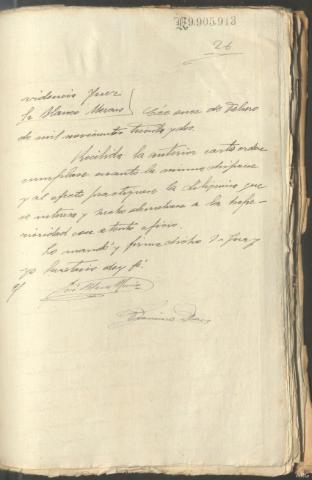 R9.905.913
26
videncia Juez
Sr Blanco Moreno } Cée once de Febrero
de mil novecientos treinta y dos.
Recibida la anterior carta orden
cumplase cuanto la misma dispone
y al efecto practiquese la diligencia que
se interesa y hecho devuelvase a la Supe-
rioridad con atento oficio.
Lo mandó y firma dicho Sr Juez y
yo Secretario doy fé.